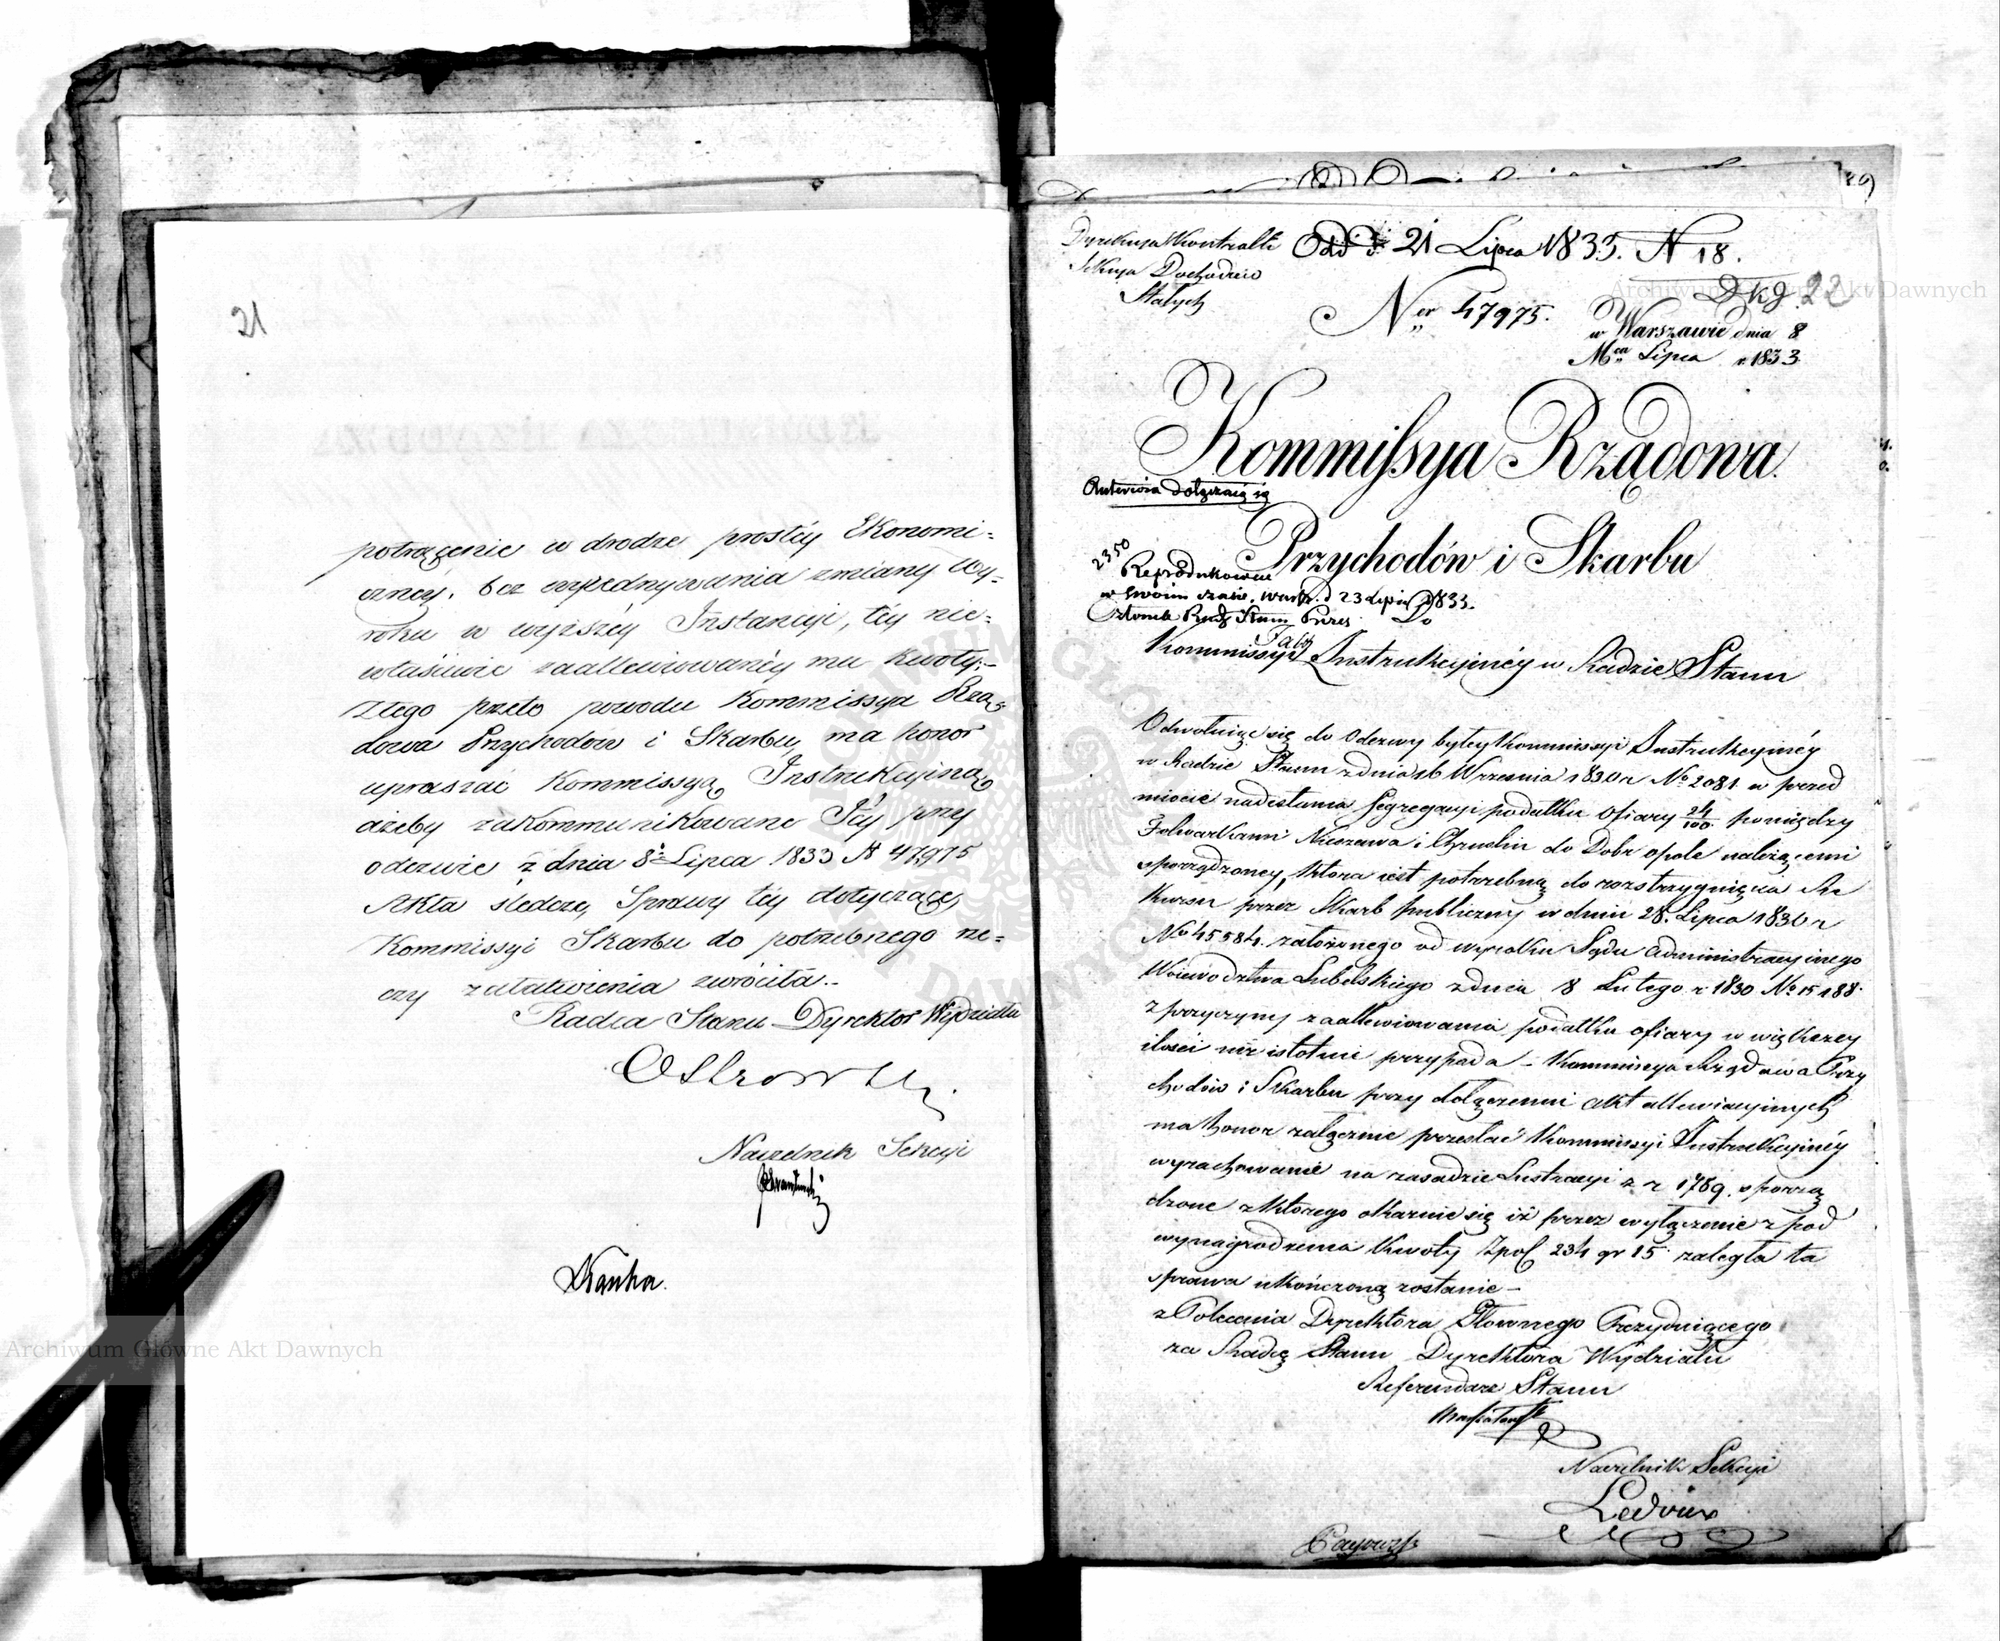 21
potrącenie w drodze prostéy Ekonomi=
cznéy, bez wyiednywania zmiany Wy=
roku w wyższéy Instancyi, téy nie=
właściwie zaallewiowanéy mu kwoty.–
Z tego przeto powodu Kommissya Rzą=
dowa Przychodow i Skarbu, ma honor
upraszać Kommissyą Instrukcyiną
ażeby zakommunikowane Jéy przy
odezwie z dnia 8 Lipca 1833 N 47,975
Akta śledcze, Sprawy téy dotyczące
Kommissyi Skarbu do potrzebnego rze=
czy załatwienia zwróciła..
Radca Stanu Dyrektor Wydziału
Naczelnik Sekcyi
Archiwum Główne Akt Dawnych
Dyrekcya Kontrolli
Sekcya Dochodów
Stałych
21 Lipca 1833. N 18.
22
Ner 47975.
w Warszawie dnia 8
Mca Lipca r. 1833
Kommissya Rządowa
Przychodów i Skarbu
2350
w swoim czasie. Warsz. d 23 Lipca 1833.
Do
Kommissyi Instrukcyinéy w Radzie Stanu
Odwołuiąc się do Odezwy byłey Kommissyi Instrukcyinéy
w Radzie Stanu z dnia 16 Września 1830 r No 2081 w przed
miocie nadesłania Segregacyi podatku Ofiary 24/100 pomiędzy
Folwarkami Niezdawa i Gruslin do Dobr Opole należącemi
sporządzoney, która iest potrzebną do rozstrzygnięcia Re
kursu przez Skarb publiczny w dniu 28. Lipca 1830 r
No 45584. założonego od wyroku Sądu Administracyinego
Woiewództwa Lubelskiego z dnia 8 Lutego r 1830 No 15188.
z przyczyny zaallewiowania podatku ofiary w większey
ilości niż istotnie przypada – Kommissya Rządowa Przy
chodów i Skarbu przy dołączeniu akt allewiacyinych
ma honor załącznie przesłać Kommissyi Instrukcyinéy
wyrachowanie na zasadzie Lustracyi z r 1789. sporzą
dzone z którego okaznie się iż przez wyłączenie z pod
wynagrodzenia kwoty Zpol 234 gr 15 zaległa ta
sprawa ukończoną zostanie –
z Polecenia Dyrektora Głównego Prezyduiącego
za Radcę Stanu Dyrektora Wydziału
Referendarz Stanu
Naczelnik Sekcyi
Ledoux